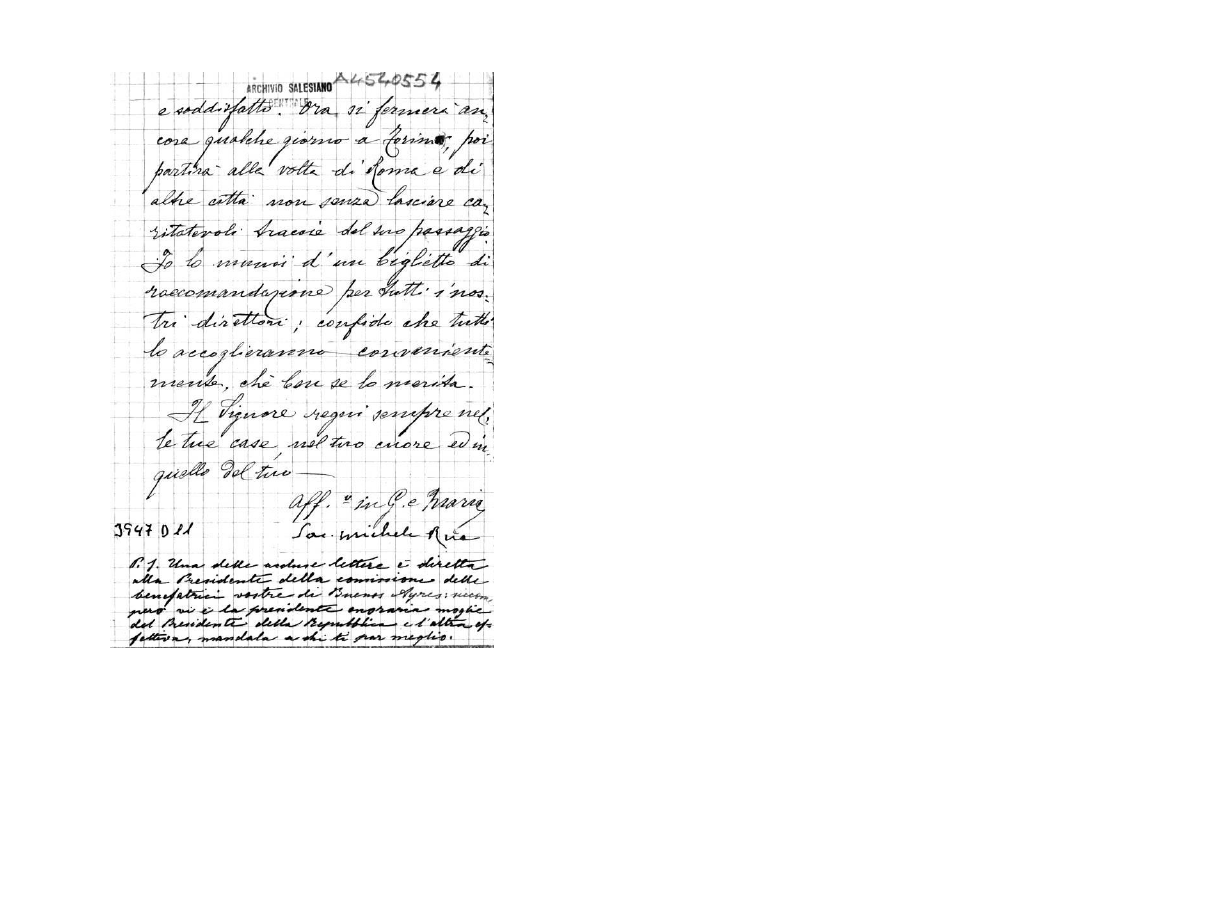 A4540554
ARCHIVIO SALESIANO
CENTRALE
e soddisfatto. Ora si fermerà an-
cora qualche giorno a Torino, poi
partirà alla volta di Roma e di
altre città non senza lasciare ca-
ritatevoli traccie del suo passaggio.
Io lo munii d'un biglietto di
raccomandazione per tutti i nos-
tri direttori; confido che tutti
lo accoglieranno conveniente-
mente, chè ben se lo merita.
Il Signore regni sempre nel-
le tue case, nel tuo cuore ed in
quello del tuo
Aff.º in G. e Maria
Sac. Michele Rua
3947 D 11
P.S. Una delle accluse lettere è diretta
alla Presidente della commissione delle
benefatrici vostre di Buenos Ayres:
però vi è la presidente onoraria moglie
del Presidente della Repubblica e l'altra ef-
fettiva, mandala a chi ti par meglio.